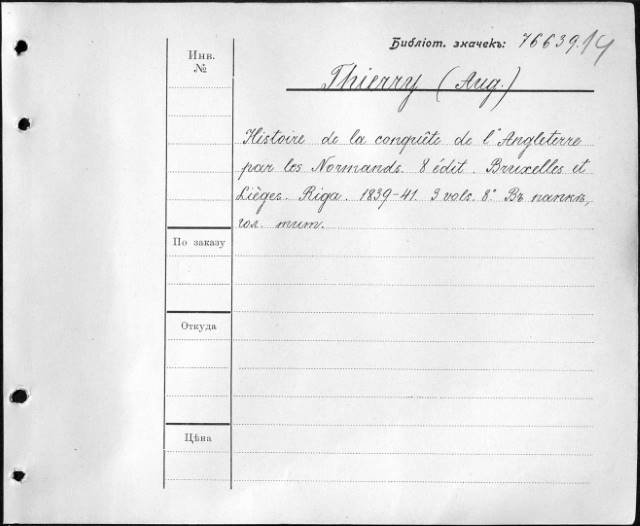 Библіот. значекъ: 76639.14
Инв.
№
Thierry (Aug.)
Histoire de la conquête de l'Angleterre
par les Normands. 8 édit. Bruxelles et
Lièges. Riga. 1839-41. 3 vols. 8º. Въ папкѣ,
гол. тит.
По заказу
Откуда
Цѣна